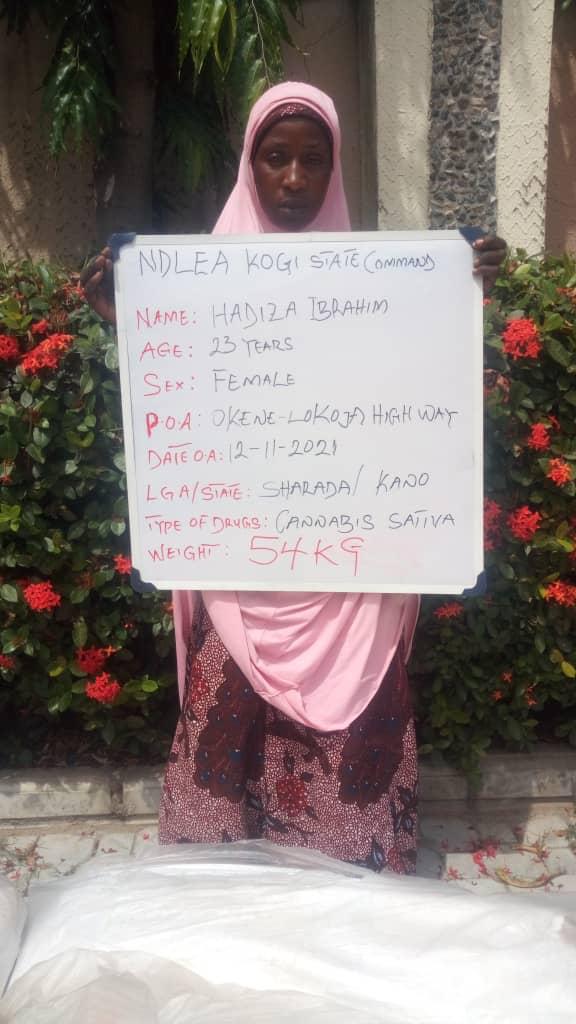 NDLEA KOGI STATE COMMAND
NAME: HADIZA IBRAHIM
AGE: 23 YEARS
SEX: FEMALE
P.O.A: OKENE-LOKOJA HIGH WAY
DATE O.A: 12-11-2021
LGA/STATE: SHARADA/ KANO
TYPE OF DRUGS: CANNABIS SATIVA
WEIGHT: 54KG